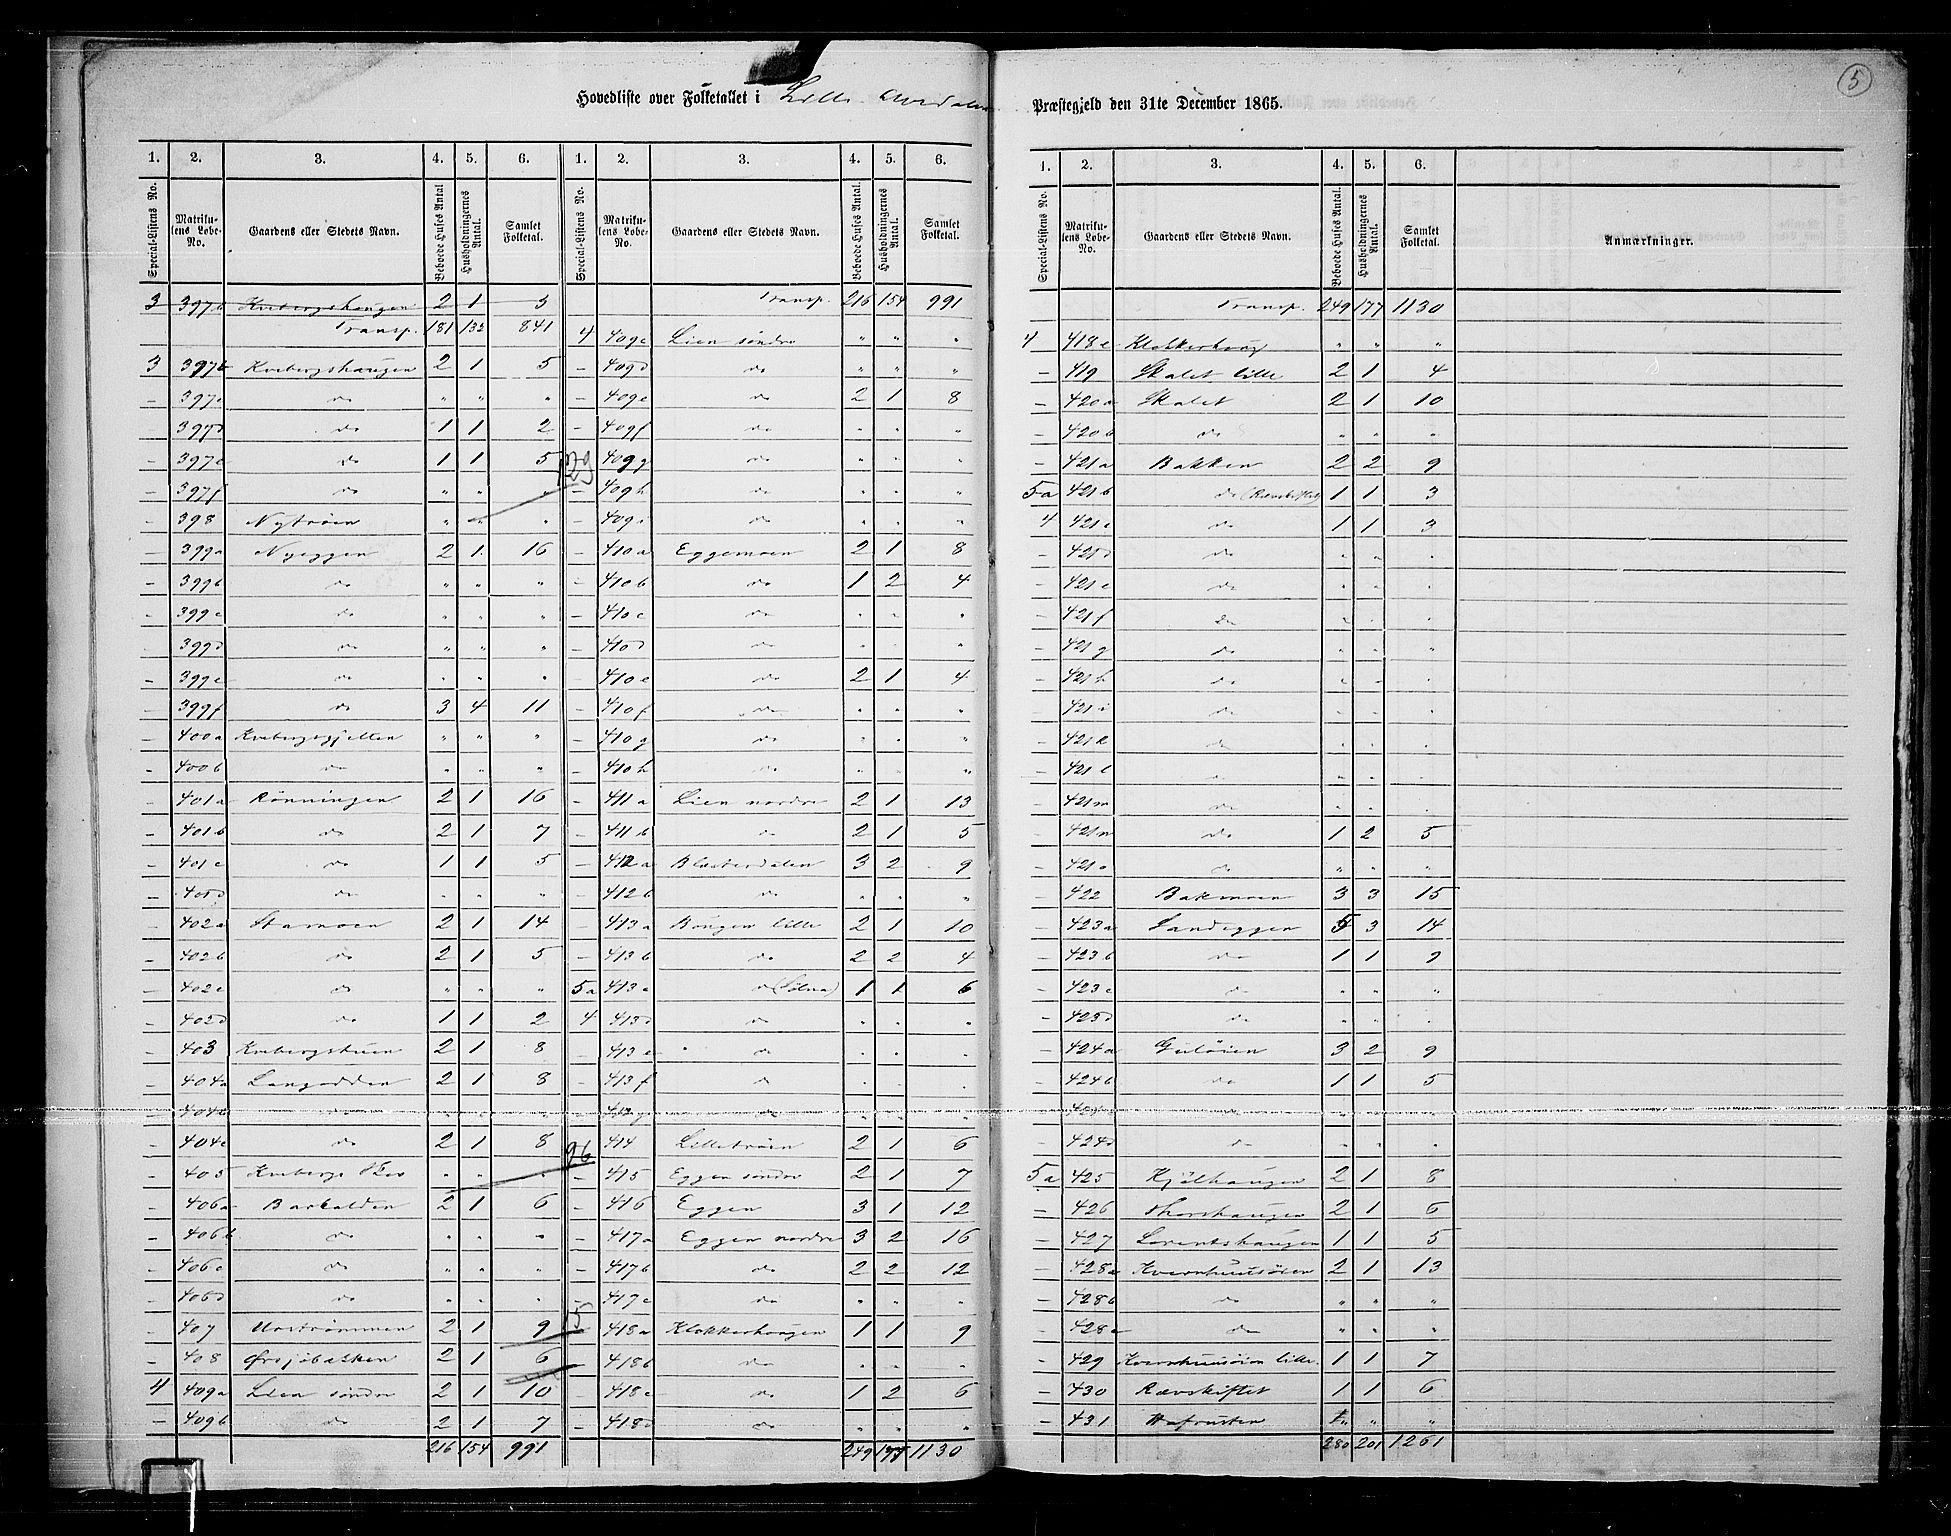 5
Hovedliste over Folketallet i Lille Elvedalen Præstegjeld den 31te December 1865.
1. 2. 3. 4. 5. 6.
Special-Listens No. Matrikulens Løbe-No. Gaardens eller Stedets Navn. Beboede Huses Antal Husholdningernes Antal. Samlet Folketal.
3 397b Kvebergshaugen 2 1 3
Transp. 181 132 841
3 397b Kvebergshaugen 2 1 5
- 397c do " " "
- 397d do 1 1 2
- 397e do 1 1 5
129
- 397f do " " "
- 398 Nytrøen " " "
- 399a Nyeggen 2 1 16
- 399b do " " "
- 399c do " " "
- 399d do " " "
- 399e do " " "
- 399f do 3 4 11
- 400a Kvebergsgjelten " " "
- 400b do " " "
- 401a Rønningen 2 1 16
- 401b do 2 1 7
- 401c do 1 1 5
- 401d do " " "
- 402a Stamoen 2 1 14
- 402b do 2 1 5
- 402c do " " "
- 402d do 1 1 2
- 403 Kvebergstuen 2 1 8
- 404a Langodden 2 1 8
- 404b do " " "
- 404c do 2 1 8
96
- 405 Kvebergs " " "
- 406a Barkalden 2 1 6
- 406b do " " "
- 406c do " " "
- 406d do " " "
- 407 Uostrømmen 2 1 9
15
- 408 Ørsjøbakken 2 1 6
4 409a Lien søndre 2 1 10
- 409b do 2 1 7
216 154 991
1. 2. 3. 4. 5. 6.
Special-Listens No. Matrikulens Løbe-No. Gaardens eller Stedets Navn. Beboede Huses Antal. Husholdningernes Antal. Samlet Folketal.
Transp. 216 154 991
4 409c Lien søndre " " "
- 409d do " " "
- 409e do 2 1 8
- 409f do " " "
- 409g do " " "
- 409h do " " "
- 409i do " " "
- 410a Eggemoen 2 1 8
- 410b do 1 2 4
- 410c do " " "
- 410d do " " "
- 410e do 2 1 4
- 410f do " " "
- 410g do " " "
- 410h do " " "
- 411a Lien nordre 2 1 13
- 411b do 2 1 5
- 412a Blæsterdalen 3 2 9
- 412b do " " "
- 413a Bangen lille 2 1 10
- 413b do 2 2 4
5a 413c do (Sølna) 1 1 6
4 413d do " " "
- 413e do " " "
- 413f do " " "
- 413g do " " "
- 414 Lilletrøen 2 1 6
- 415 Eggen søndre 2 1 7
- 416 Eggen 3 1 12
- 417a Eggen nordre 3 2 16
- 417b do 2 2 12
- 417c do " " "
- 418a Klokkerhaugen 1 1 9
- 418b do " " "
- 418c do 1 2 6
- 418d do " " "
249 177 1130
1. 2. 3. 4. 5. 6.
Special-Listens No. Matrikulens Løbe-No. Gaardens eller Stedets Navn. Beboede Huses Antal. Husholdningernes Antal. Samlet Folketal. Anmærkninger.
Transp. 249 177 1130
4 418e Klokkerhaug " " "
- 419 Skalet lille 2 1 4
- 420a Skalet 2 1 10
- 420b do " " "
- 421a Bakken 2 2 9
5a 421b do 1 1 3
4 421c do 1 1 3
- 421d do " " "
- 421e do " " "
- 421f do " " "
- 421g do " " "
- 421h do " " "
- 421i do " " "
- 421k do " " "
- 421l do " " "
- 421m do " " "
- 421n do 1 2 5
- 421o do " " "
- 422 Bakmoen 3 3 15
- 423a Sandeggen 5 3 14
- 423b do 1 1 9
- 423c do " " "
- 423d do " " "
- 424a Guløien 3 2 9
- 424b do 1 1 5
- 424c do " " "
- 424d do " " "
5a 425 Kjølhaugen 2 1 8
- 426 Thorshaugen 2 1 6
- 427 Lorentshaugen 1 1 5
- 428a Kvernhuusøien 2 1 13
- 428b do " " "
- 428c do " " "
- 429 Kvernhuusøien lille. 1 1 7
- 430 Rævskiftet 1 1 6
- 431 Hafrusten " " "
280 201 1261